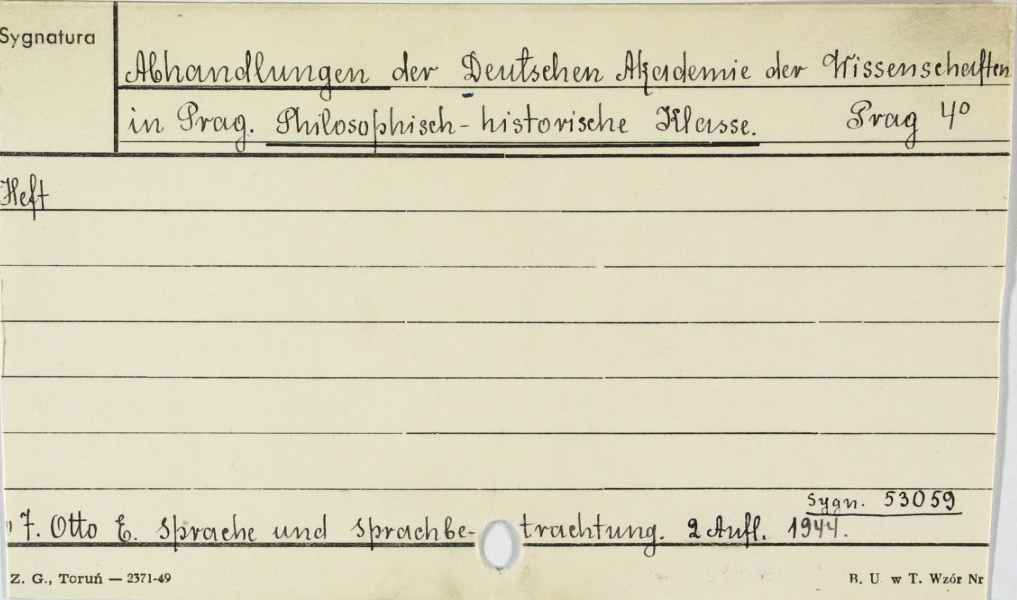 Sygnatura
Abhandlungen der Deutschen Akademie der Wissenschaften
in Prag. Philosophisch-historische Klasse. Prag 4°
Heft
Sygn. 53059
7. Otto E. Sprache und Sprachbe-trachtung. 2 Aufl. 1944.
Z. G., Toruń — 2371-49 B. U. w T. Wzór Nr